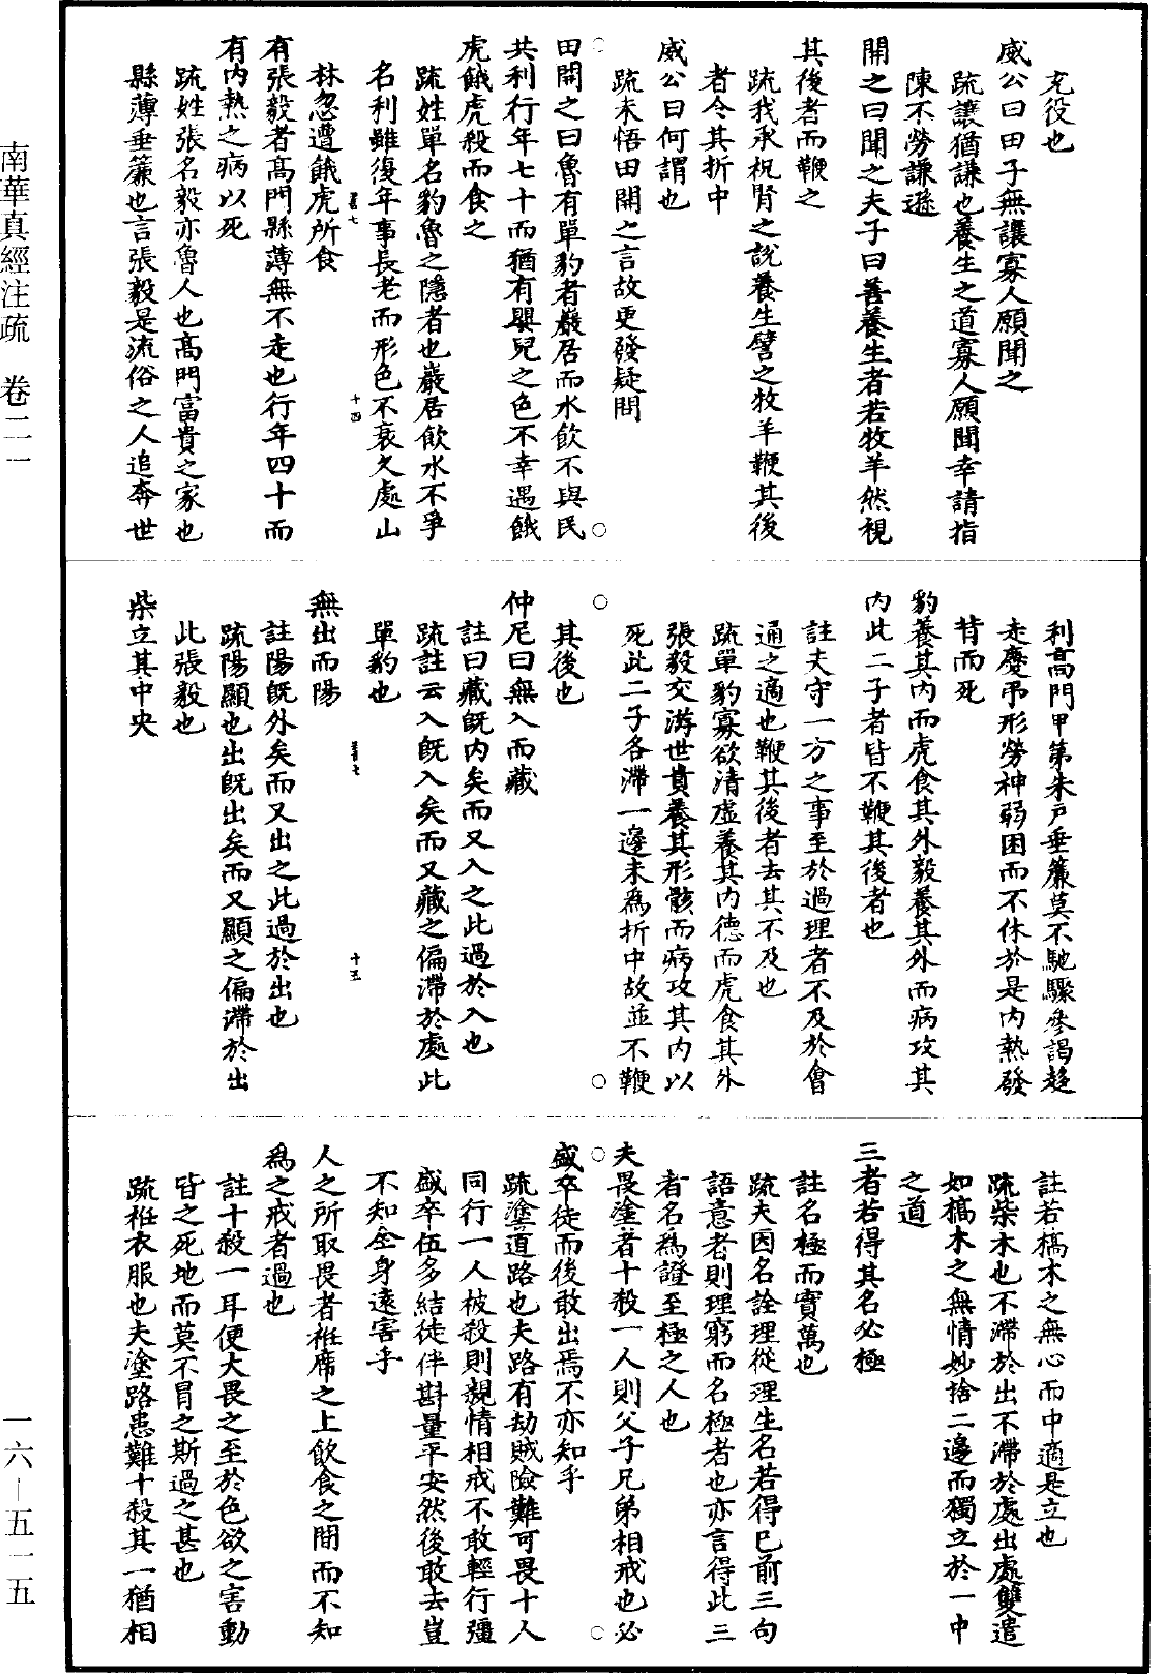 充役也
威公曰田子無讓寡人願聞之
疏讓猶謙也養生之道寡人願聞幸請指
陳不勞謙遜
開之曰聞之夫子曰善養生者若牧羊然視
其後者而鞭之
疏我承祝腎之說養生譬之牧羊鞭其後
者令其折中
威公曰何謂也
疏未悟田開之言故更發疑問
田開之曰魯有單豹者巖居而水飲不與民
共利行年七十而猶有嬰兒之色不幸遇餓
虎餓虎殺而食之
疏姓單名豹魯之隱者也巖居飲水不爭
名利雖復年事長老而形色不衰久處山
林忽遭餓虎所食
十四
有張毅者高門縣薄無不走也行年四十而
有內熱之病以死
疏姓張名毅亦魯人也高門富貴之家也
縣薄垂簾也言張毅是流俗之人追奔世
利高門甲第朱戶垂簾莫不馳驟參謁趨
走慶弔形勞神弱困而不休於是內熱發
背而死
豹養其內而虎食其外毅養其外而病攻其
內此二子者皆不鞭其後者也
註夫守一方之事至於過理者不及於會
通之適也鞭其後者去其不及也
疏單豹寡欲清虛養其內德而虎食其外
張毅交游世貴養其形骸而病攻其內以
死此二子各滯一邊未為折中故並不鞭
其後也
仲尼曰無入而藏
註曰藏既內矣而又入之此過於入也
疏註云入既入矣而又藏之偏滯於處此
單豹也
十五
無出而陽
註陽既外矣而又出之此過於出也
疏陽顯也出既出矣而又顯之偏滯於出
此張毅也
柴立其中央
註若槁木之無心而中適是立也
疏柴木也不滯於出不滯於處出處雙遣
如槁木之無情妙捨二邊而獨立於一中
之道
三者若得其名必極
註名極而實萬也
疏夫因名詮理從理生名若得已前三句
語意者則理窮而名極者也亦言得此三
者名為證至極之人也
夫畏塗者十殺一人則父子兄弟相戒也必
盛卒徒而後敢出焉不亦知乎
疏塗道路也夫路有劫賊險難可畏十人
同行一人被殺則親情相戒不敢輕行彊
盛卒伍多結徒伴斟量平安然後敢去豈
不知全身遠害乎
人之所取畏者衽席之上飲食之間而不知
為之戒者過也
註十殺一耳便大畏之至於色欲之害動
皆之死地而莫不冒之斯過之甚也
疏衽衣服也夫塗路患難十殺其一猶相
南華真經注疏 卷二一
一六—五一五